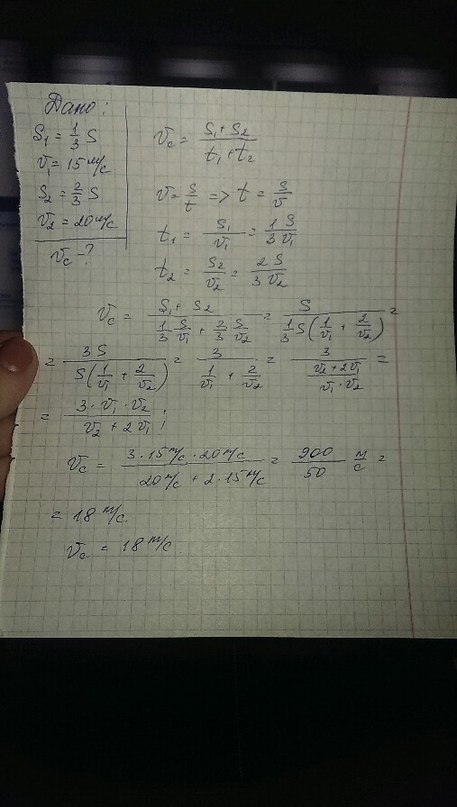 Дано:
S₁ = 1/3 S
v₁ = 15 м/с
S₂ = 2/3 S
v₂ = 20 м/с
v_c - ?
v_c = (S₁ + S₂)/(t₁ + t₂)
v = S/t => t = S/v
t₁ = S₁/v₁ = 1/3 S/v₁
t₂ = S₂/v₂ = 2/3 S/v₂
v_c = (S₁ + S₂)/(1/3 S/v₁ + 2/3 S/v₂) = S/(1/3 S(1/v₁ + 2/v₂)) =
= 3S/(S(1/v₁ + 2/v₂)) = 3/(1/v₁ + 2/v₂) = 3/((v₂ + 2v₁)/(v₁ · v₂)) =
= (3 · v₁ · v₂)/(v₂ + 2v₁) ;
v_c = (3 · 15 м/с · 20 м/с)/(20 м/с + 2 · 15 м/с) = 900/50 м/с =
= 18 м/с.
v_c = 18 м/с